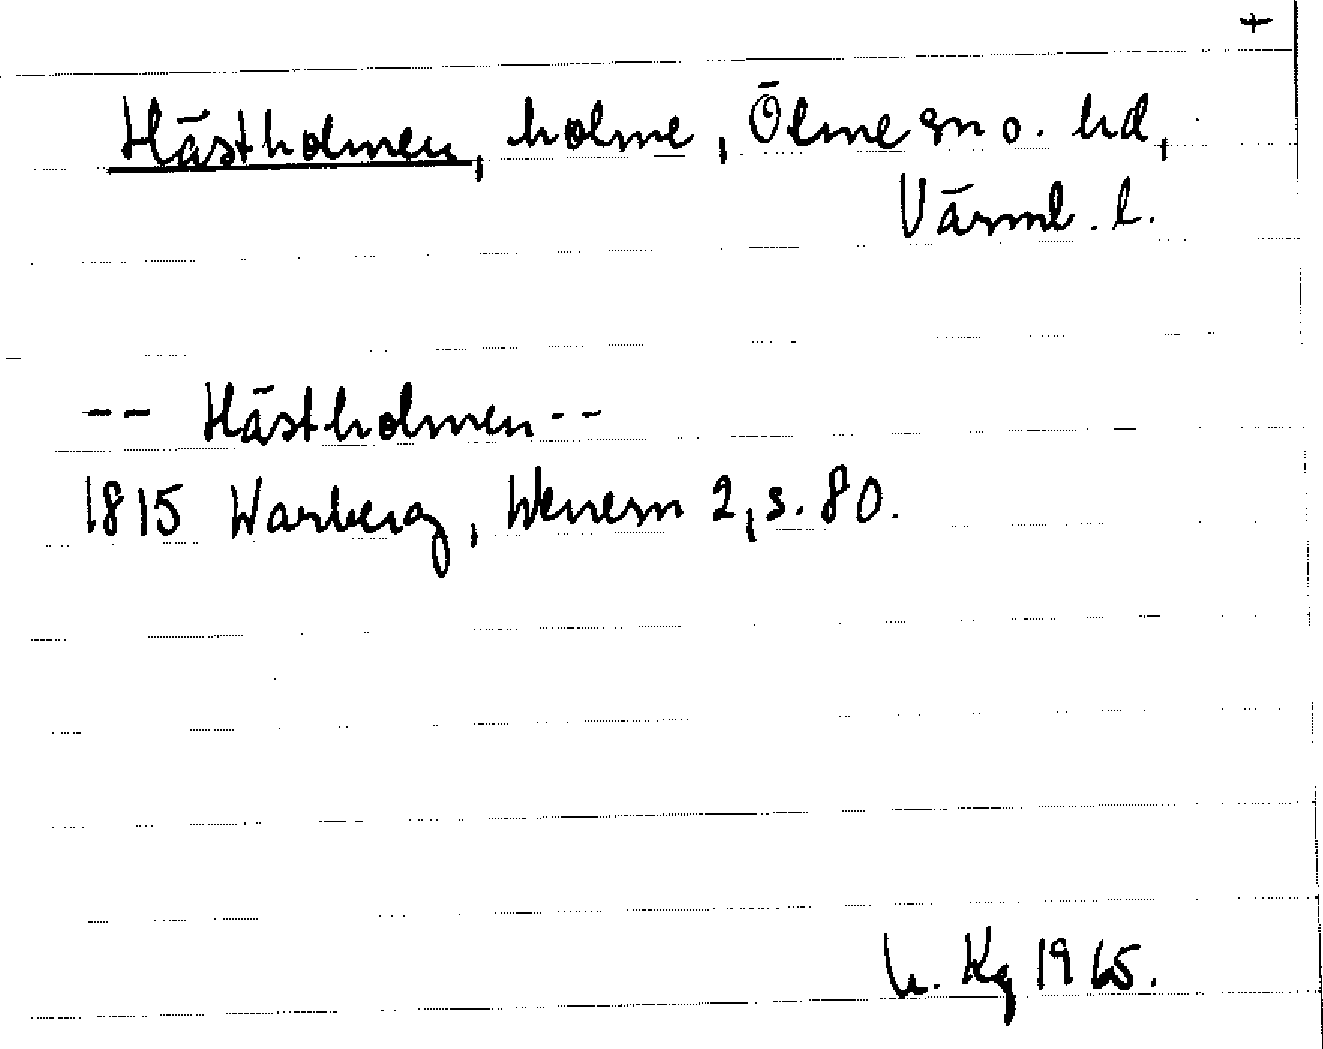 +
Hästholmen, holme, Ölme sn o. hd,
Värml. l.
-- Hästholmen --
1815 Warberg, Wenern 2, s. 80.
Kg 1965.